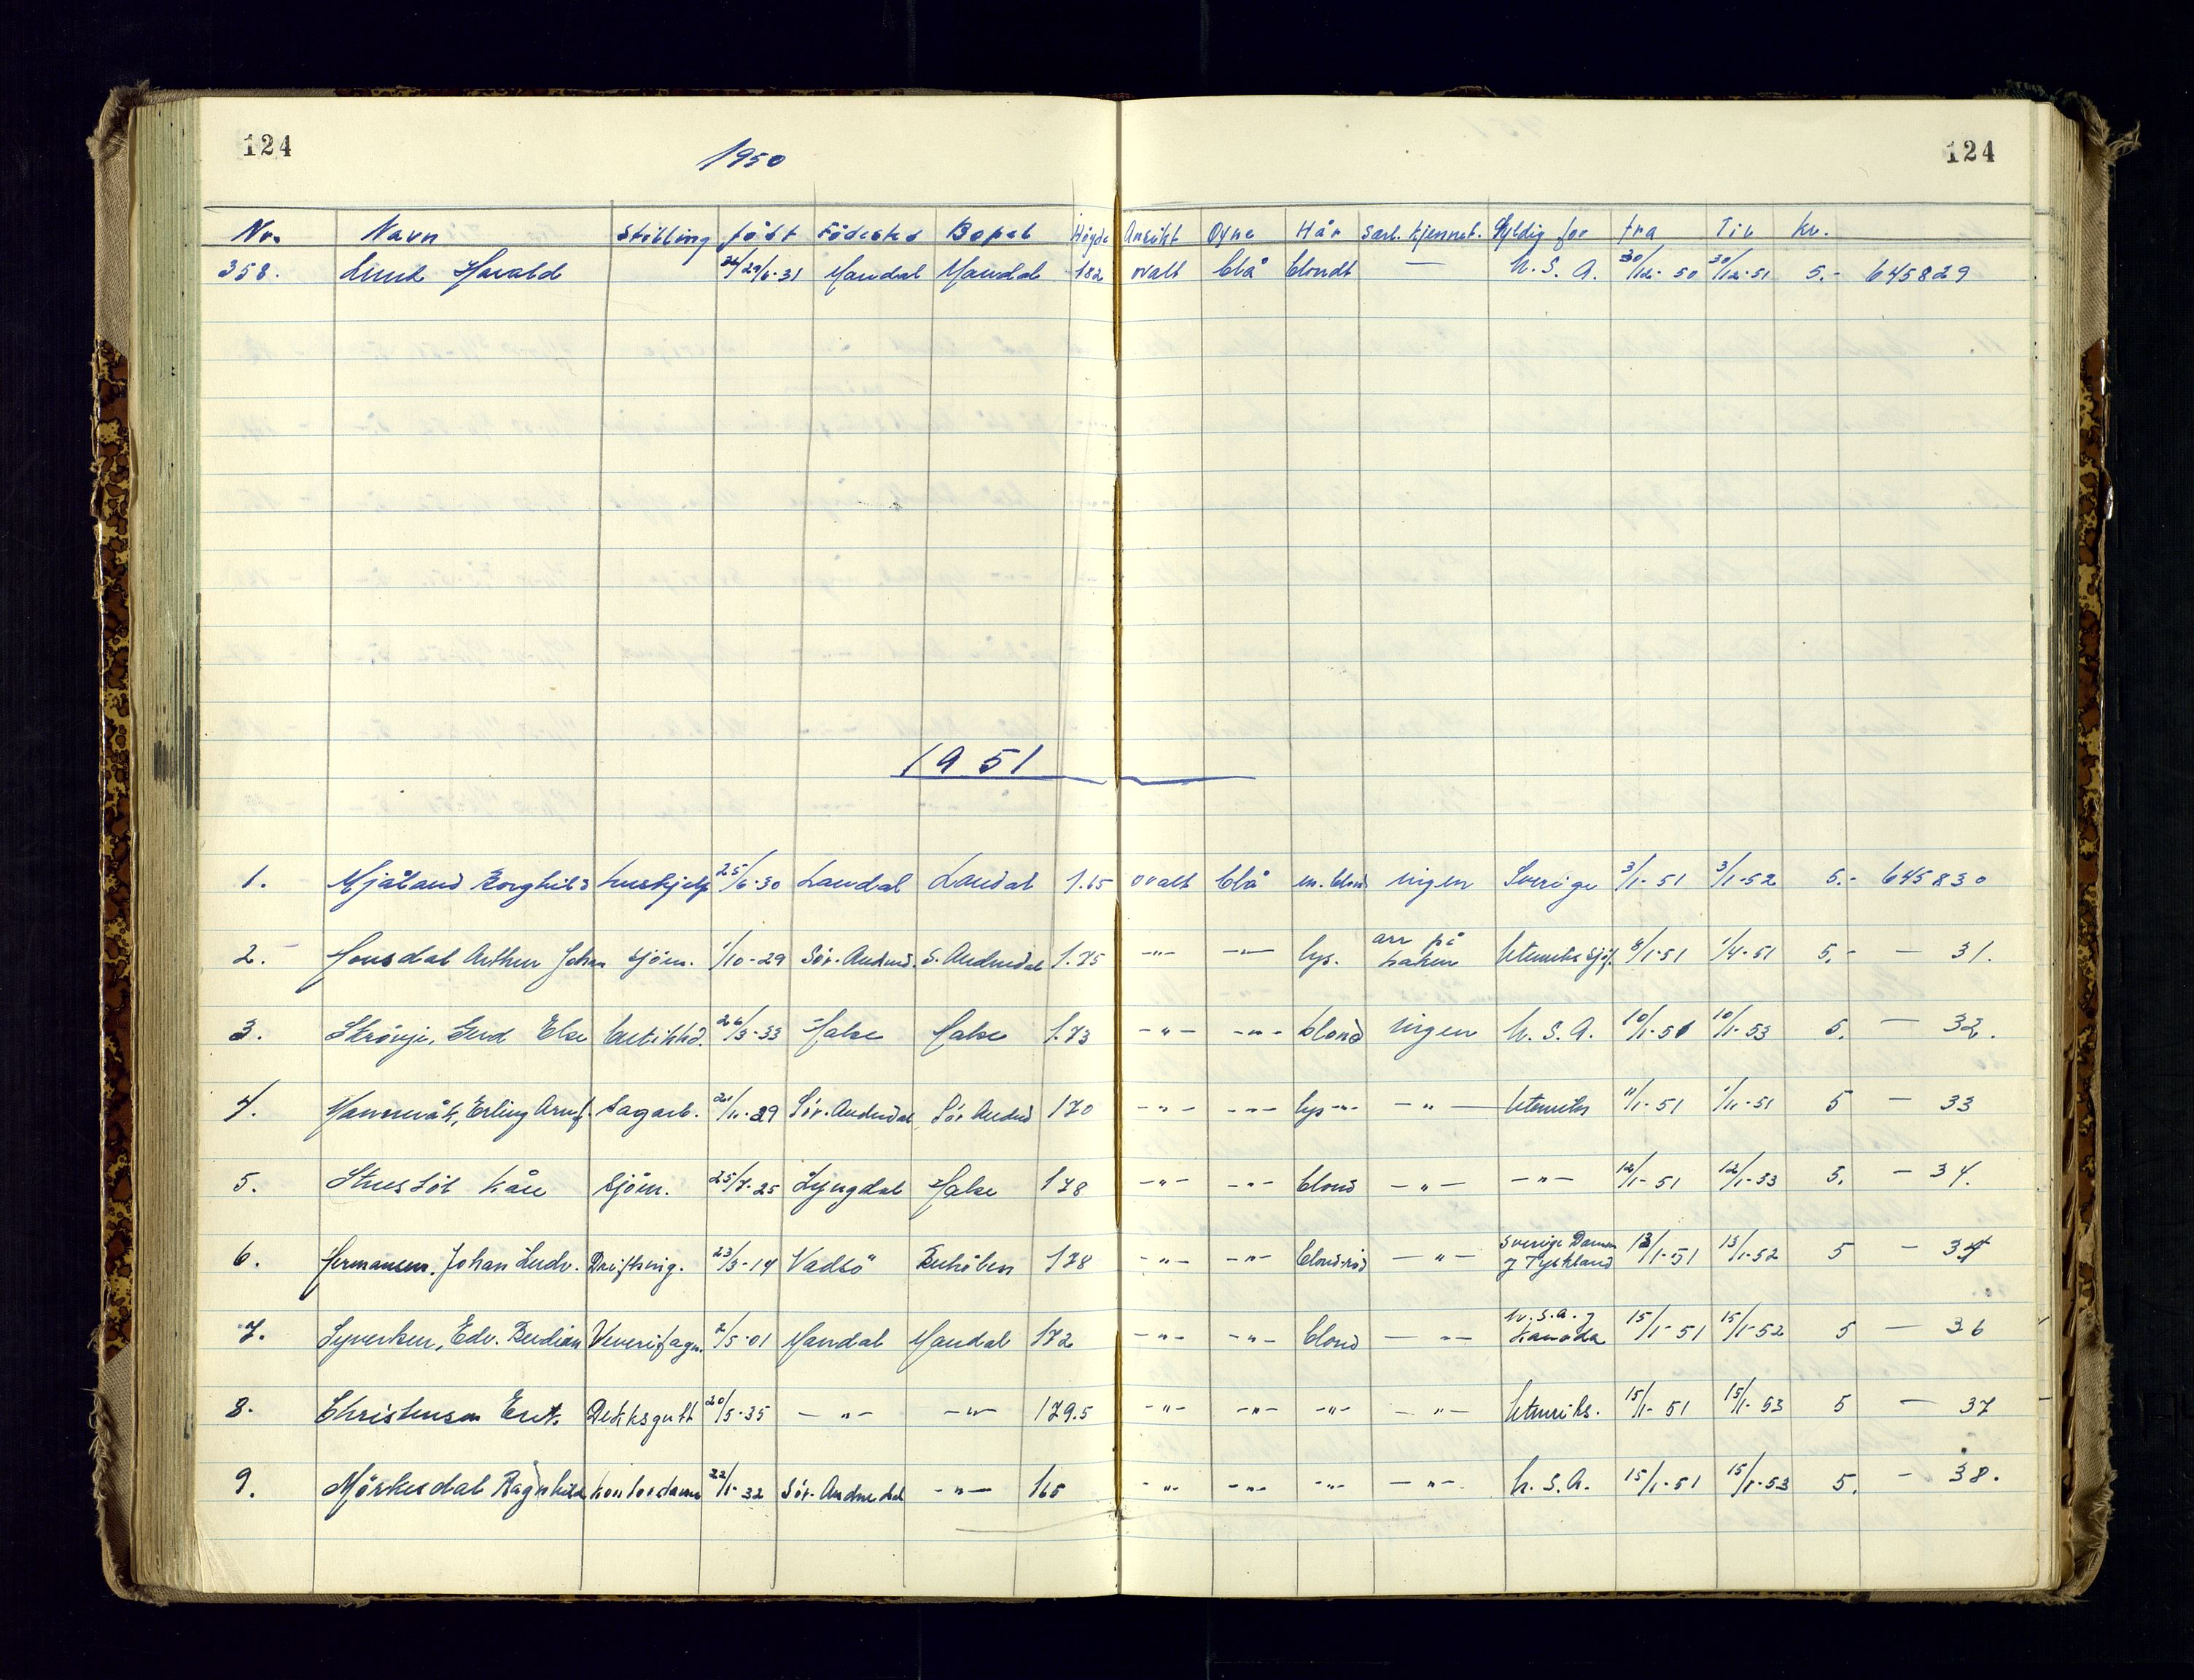 124 1950 124
Nr. Navn Stilling født Födested Bopel Höyde Ansikt Öyne Hår Særl. Kjennet. Gyldig for fra Til Kr.
358. Lund Harald 29/6-31 Mandal Mandal 182 ovalt blå blondt — U.S.A. 30/12-50 30/12-51 5.- 645829
1951
1. Mjåland Borghild hushjelp 25/6-30 Laudal Laudal 1.65 ovalt blå m. blond ingen Sverige 3/1-51 3/1-52 5.- 645830
2. Arthur Johan sjöm. 1/10-29 Sör-Audned. S. Audnedal 1.75 -"- -"- lys. arr på haken Utenriks sjöf. 8/1-51 1/4-51 5.- — 31.
3. Else butikkd. 26/3-33 Halse Halse 1.73 -"- -"- blond ingen U.S.A. 10/1-51 10/1-53 5. — 32.
4. Mannevåk, Erling Arnf. sagarb. 21/11-29 Sör-Audnedal Sör Audned 170 -"- -"- lys-"- -"- Utenriks 11/1-51 1/11-51 5 — 33
5. Kåre sjöm. 25/7-25 Lyngdal Halse 178 -"- -"- blond -"- -"- 12/1-51 12/1-53 5. — 34.
6. Hermansen, Johan Ludv. Drifting. 23/3-14 Vadsö 178 -"- -"- blond-röd -"- Sverige Danm. & Tyskland 13/1-51 13/1-52 5 — 34
7. Syvertsen, Edv. Berdian Veverifagm. 2/5-01 Mandal Mandal 172 -"- -"- blond -"- U.S.A. & Kanada 15/1-51 15/1-52 5 — 36
8. Christensen Erit. Dekksgutt 20/5-35 -"- -"- 179.5 -"- -"- -"- -"- Utenriks. 15/1-51 15/1-53 5 — 37
9. Mörkesdal Ragnhild kontordame 22/1-32 Sör-Audnedal -"- 165 -"- -"- -"- -"- U.S.A. 15/1-51 15/1-53 5. — 38.